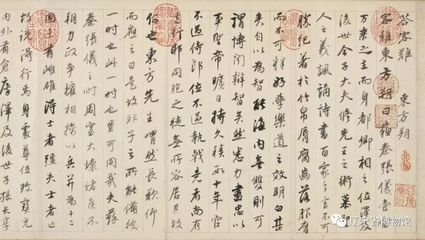 答客難 東方朔
客難東方朔曰蘇秦張儀壹當
萬乘之主而身都卿相之位澤及
後世今子大夫修先王之術慕聖
人之義諷誦詩書百家之言不可
勝紀著於竹帛唇腐齒落服膺
而不可釋好學樂道之效明白甚
矣自以為智能海內無雙則可
謂博聞辯智矣然悉力盡忠以
事聖帝曠日持久積數十年官
不過侍郎位不過執戟意者尚有
遺行邪同胞之徒無所容居其故
何也東方先生喟然長歎仰
而應之曰是故非子之所能備彼
一時也此一時也豈可同哉夫蘇
秦張儀之時周室大壞諸侯不
朝力政爭權相擒以兵并為十二
國未有雌雄得士者強失士者亡
故說得行焉身處尊位珍寶充
內外有倉廩澤及後世子孫長享
辽宁省博物馆